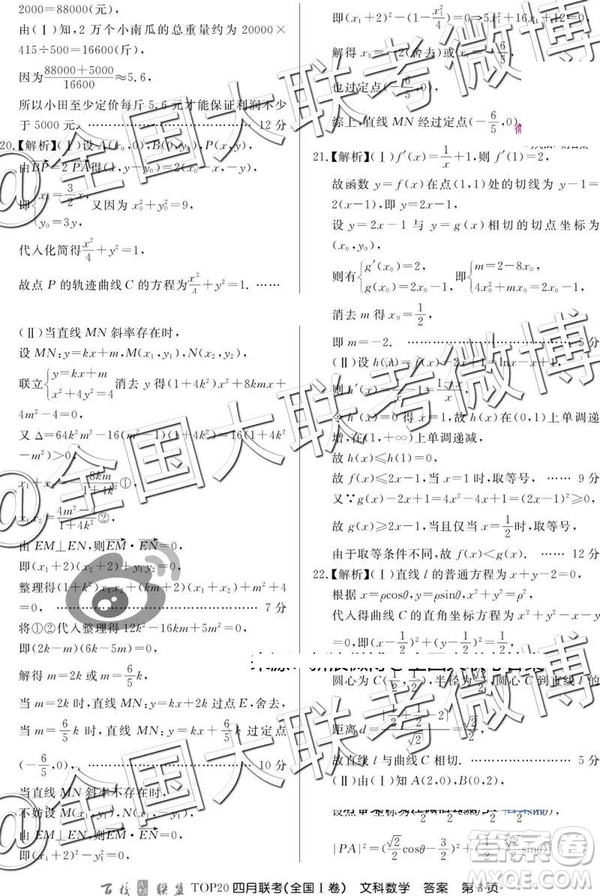 2000=88000(元),
由(Ⅰ)知,2万个小南瓜的总重量约为20000×
415÷500=16600(斤),
因为(88000+5000)/16600≈5.6,
所以小田至少定价每斤5.6元才能保证利润不少
于5000元. …… 12分
20.【解析】(Ⅰ)设A(x₀,0),B(0,y₀),P(x,y),
由BP=2PA得(x,y-y₀)=2(x₀-x,-y),
即{x₀=3/2 x, 又因为x₀²+y₀²=9,
y₀=3y,
代入化简得x²/4+y²=1,
故点P的轨迹曲线C的方程为x²/4+y²=1. ……
(Ⅱ)当直线MN斜率存在时,
设MN:y=kx+m,M(x₁,y₁),N(x₂,y₂),
联立{y=kx+m
x²+4y²=4 消去y得(1+4k²)x²+8kmx+
4m²-4=0,
又Δ=64k²m²-16(m²-1)(1+4k²)=16(1+4k²
-m²)>0,
x₁+x₂=-8km/(1+4k²)①,
x₁x₂=(4m²-4)/(1+4k²)②,
由EM⊥EN,则EM·EN=0,
即(x₁+2)(x₂+2)+y₁y₂=0,
整理得(1+k²)x₁x₂+(km+2)(x₁+x₂)+m²+4
=0. …… 7分
将①②代入整理得12k²-16km+5m²=0,
即(2k-m)(6k-5m)=0,
解得m=2k或m=6/5 k,
当m=2k时,直线MN过点E,舍去,
当m=6/5 k时,直线MN:y=kx+6/5 k过定点
(-6/5,0). …… 10分
当直线MN斜率不存在时,
不妨设
即
即(x₁+2)²-(1-x₁²/4)=0⇒5x₁²+16x₁+12=0,
解得x₁=-2(舍去)或x₁=-6/5,
也过定点(-6/5,0),
综上,直线MN经过定点(-6/5,0).
21.【解析】(Ⅰ)f′(x)=1/x+1,则f′(1)=2,
故函数y=f(x)在点(1,1)处的切线为y-1=
2(x-1),即y=2x-1,
设y=2x-1与y=g(x)相切的切点坐标为
(x₀,y₀),
则有{g′(x₀)=2,
g(x₀)=2x₀-1, 即{m=2-8x₀,
4x₀²+mx₀=2x₀-1,
消去m得x₀=1/2,
即m=-2. …… 5分
(Ⅱ)设h(x)=f(x)-2x+1=lnx-x+1,
则h′(x)=1/x-1=(1-x)/x,
令h′(x)=0得x=1,故h(x)在(0,1)上单调递
增,在(1,+∞)上单调递减,
故h(x)≤h(1)=0,
故f(x)≤2x-1,当x=1时,取等号, …… 9分
又∵g(x)-2x+1=4x²-4x+1=(2x-1)²≥0,
故g(x)≥2x-1,当且仅当x=1/2时,取等号,
由于取等条件不同,故f(x)<g(x). …… 12分
22.【解析】(Ⅰ)直线l的普通方程为x+y-2=0,
根据x=ρcosθ,y=ρsinθ,x²+y²=ρ²,
代入得曲线C的直角坐标方程为x²+y²-x-y
=0,即(x-1/2)²+(y-1/2)²=1/2,
圆心为C(1/2,1/2),半径为√2/2,圆心C到直线l的
距离d=
故直线l与曲线C相切. …… 5分
(Ⅱ)由(Ⅰ)知,A(2,0),B(0,2),
|PA|²=(√2/2 cosθ-3/2)²+(√2/2
百校 联盟 TOP20四月联考(全国Ⅰ卷) 文科数学 答案 第
@全国大联考微博
@全国大联考微博
@全国大联考微博